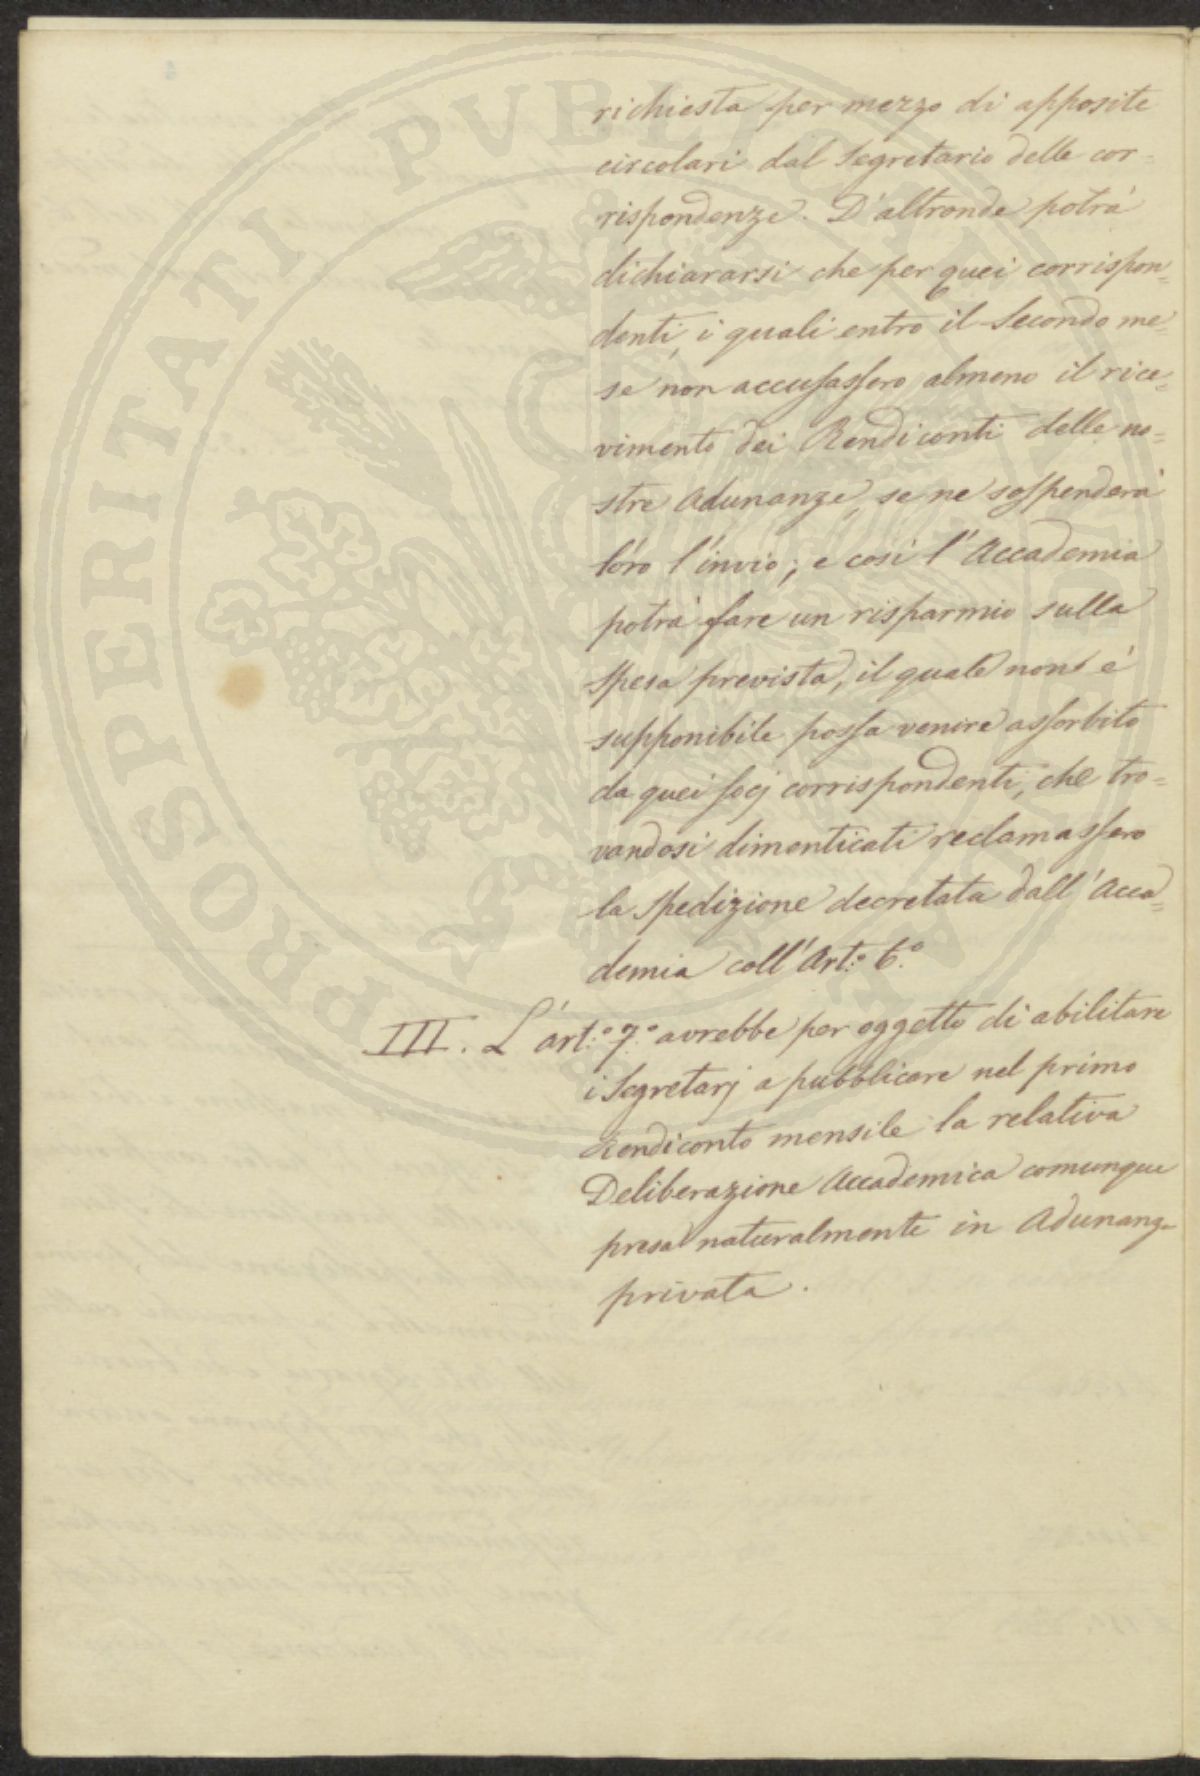 richiesta per mezzo di apposite
circolari dal Segretario delle cor=
rispondenze. D'altronde potrà
dichiararsi che per quei corrispon=
denti, i quali entro il Secondo me=
se non accusassero almeno il rice=
vimento dei Rendiconti delle no=
stre Adunanze, se ne sospenderà
loro l'invio; e così l'Accademia
potrà fare un risparmio sulla
spesa prevista, il quale non è
supponibile possa venire assorbito
da quei socj corrispondenti, che tro=
vandosi dimenticati reclamassero
la spedizione decretata dall'Acca=
demia coll'Art.º 6.º
III. L'art.º 7.º avrebbe per oggetto di abilitare
i Segretarj a pubblicare nel primo
Rendiconto mensile la relativa
Deliberazione Accademica comunque
presa naturalmente in Adunanza
privata.
PROSPERITATI PVBLICAE AVGENDAE